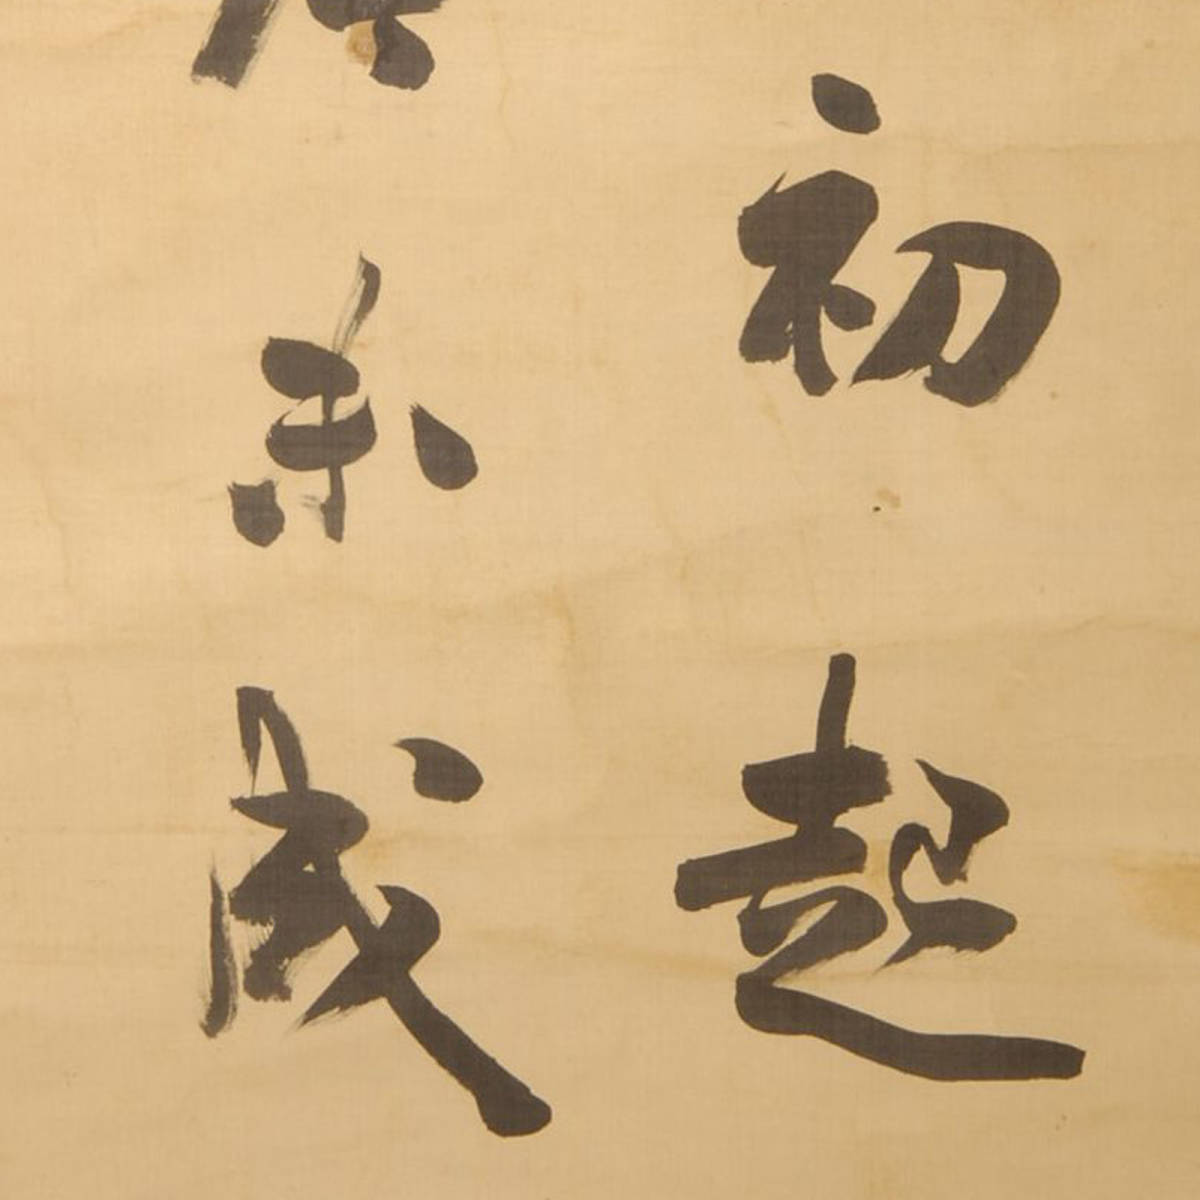 初起
未成